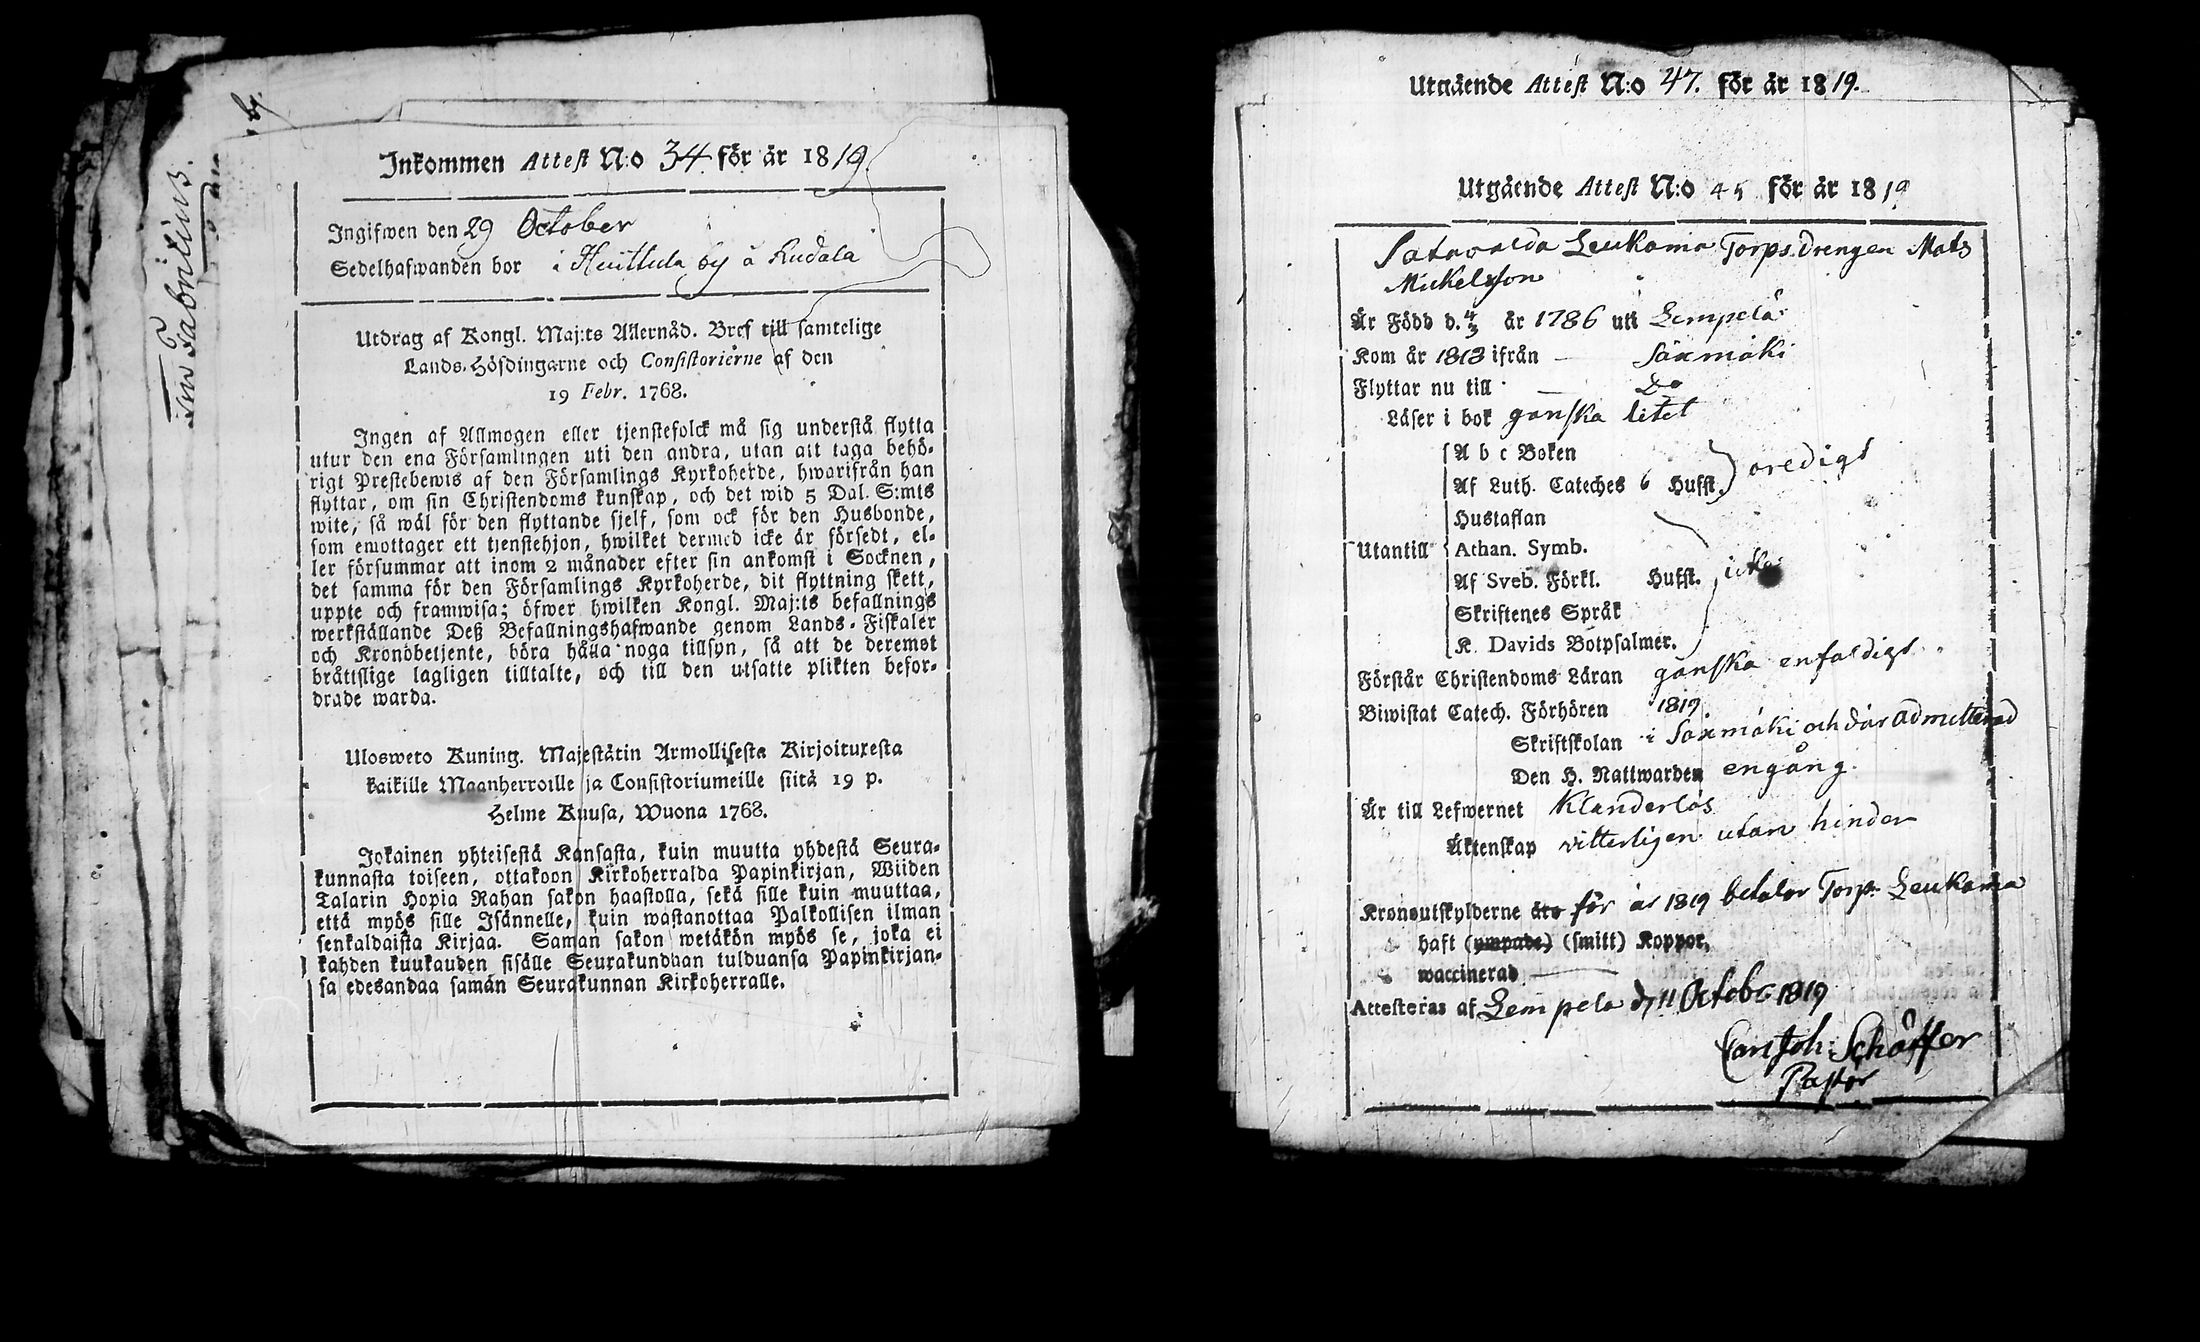 Inkommen Attest N:o 34 för år 1819.
Ingifwen den 29 October
Sedelhafwanden bor i Huittula by å Rudala
Utdrag af Kongl. Maj:ts Allernåd. Bref till samtelige
Lands-Höfdingarne och Consistorierne af den
19 Febr. 1768.
Ingen af Allmogen eller tjenstefolck må sig understå flytta
utur den ena Församlingen uti den andra, utan att taga behö-
rigt Prestebewis af den Församlings Kyrkoherde, hwarifrån han
flyttar, om sin Christendoms kunskap, och det wid 5 Dal. S:mts
wite, så wäl för den flyttande sjelf, som ock för den Husbonde,
som emottager ett tjenstehjon, hwilket dermed icke är försedt, el-
ler försummar att inom 2 månader efter sin ankomst i Socknen,
det samma för den Församlings Kyrkoherde, dit flyttning skett,
uppte och framwisa; öfwer hwilken Kongl. Maj:ts befallnings
werkställande Deß Befallningshafwande genom Lands-Fiskaler
och Kronobetjente, böra hålla noga tillsyn, så att de deremot
bråttslige lagligen tilltalte, och till den utsatte plikten befor-
drade warda.
Ulosweto Kuning. Majestätin Armollisesta Kirjoituxesta
kaikille Maanherroille ja Consistoriumeille siitä 19 p.
Helme Kuusa, Wuona 1768.
Jokainen yhteisestä Kansasta, kuin muutta yhdestä Seura-
kunnasta toiseen, ottakoon Kirkoherralda Papinkirjan, Wiiden
Talarin Hopia Rahan sakon haastolla, sekä sille kuin muuttaa,
että myös sille Isännelle, kuin wastanottaa Palkollisen ilman
senkaldaista Kirjaa. Saman sakon wetäkön myös se, joka ei
kahden kuukauden sisälle Seurakundhan tulduansa Papinkirjan-
sa edesandaa samán Seurakunnan Kirkoherralle.
Utgående Attest N:o 47. för år 1819.
Utgående Attest N:o 45 för år 1819
Leukama Torps Drengen Mats
Mickelsson
Är Född d. 4/3 år 1786 uti Lempelä
Kom år 1813 ifrån — Säxmäki
Flyttar nu till — Do
Läser i bok ganska litet
A b c Boken
Af Luth. Cateches 6 Hufst. oredigt
Hustaflan
Utantill Athan. Symb.
Af Sveb. Förkl. Hufst. icke
Skriftenes Språk
K. Davids Botpsalmer.
Förstår Christendoms Läran ganska enfaldigt
Biwistat Catech. Förhören 1819
Skriftskolan i Säxmäki och där admitterad
Den H. Nattwarden engång.
Är till Lefwernet Klanderlös
Äktenskap vitterligen utan hinder
Kronoutskylderne äro för år 1819 betalar Torp. Leukama
haft (ympade) (smitt) Koppor,
waccinerad —
Attesteras af Lempela d 11 Octobr 1819
Carl Joh: Schäffer
Pastor